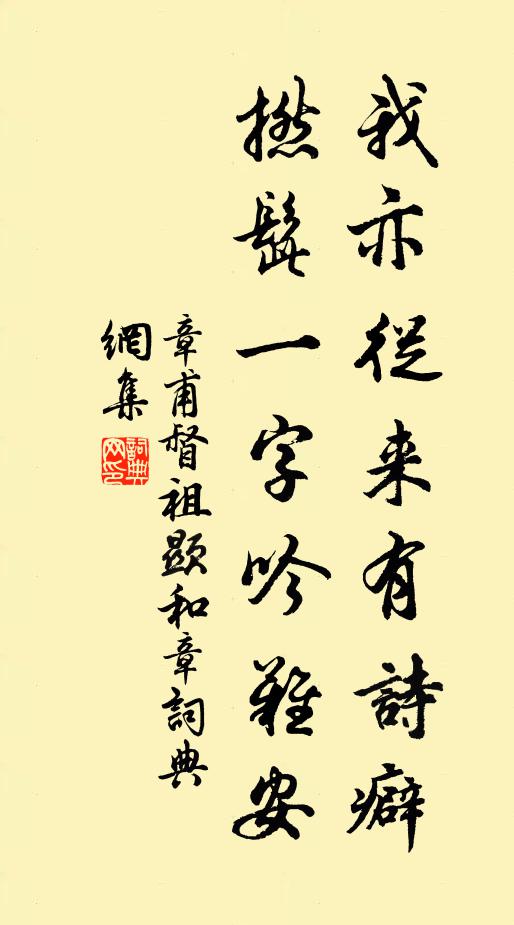 我亦從来有詩癖
撚髭一字吟難安
章甫督祖顕和章詞典
網集
詞典網印